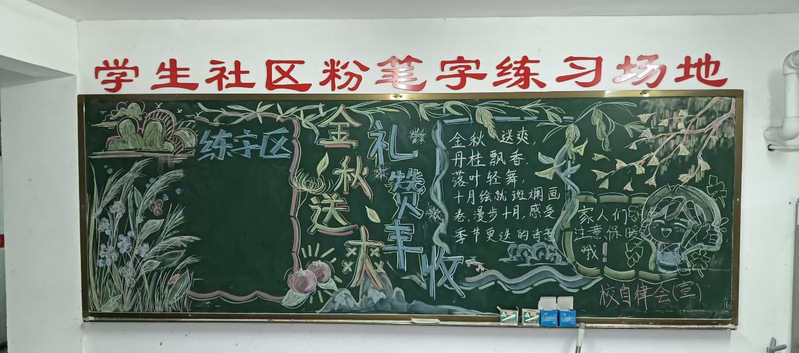 学生社区粉笔字练习场地
练字区
金秋送爽
礼赞丰收
金秋送爽,
丹桂飘香.
落叶轻舞
十月绘就斑斓画
卷.漫步十月,感受
季节更迭的诗意
家人们
注意保暖
哦!
校自律会(宣)